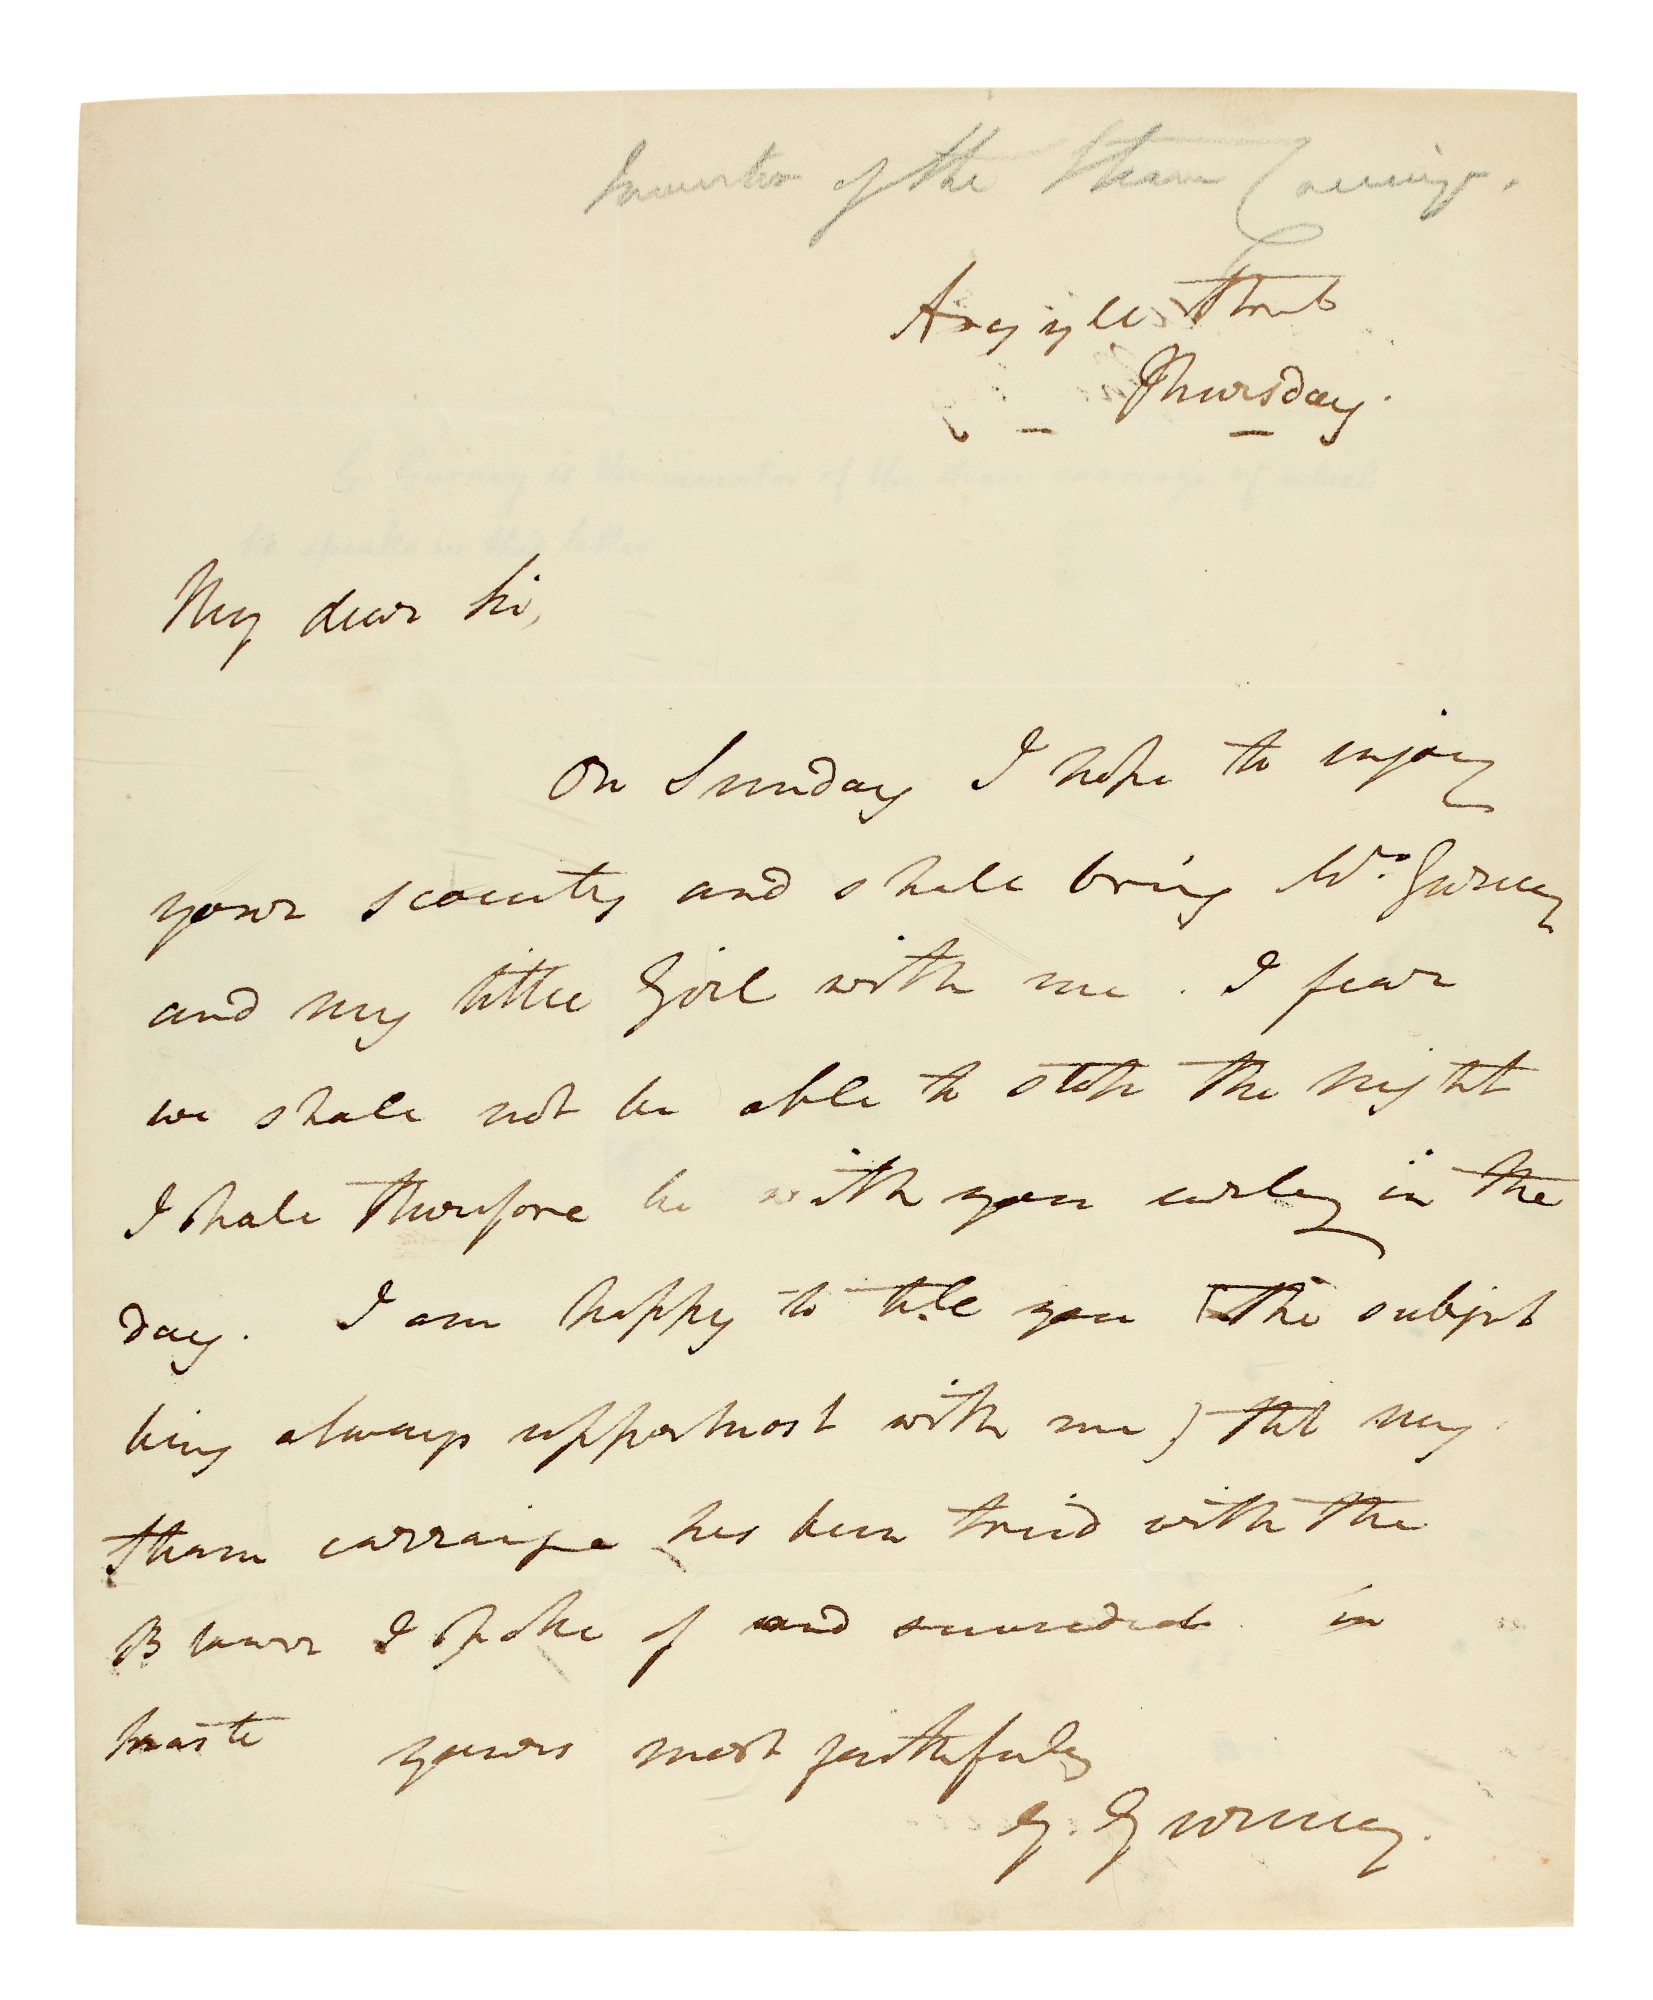 Inventor of the Steam Carriage.
Argyll Street
Thursday.
G. Gurney is the inventor of the steam carriage of which
he speaks in this letter
My dear Sir,
On Sunday I hope to enjoy
your scociety and shall bring Mrs. Gurney
and my little Girl with me. I fear
we shall not be able to stop the night
I shall therefore be with you early in the
day. I am happy to tell you (the subject
being always uppermost with me) that my
steam carraige has been tried with the
Blower I spoke of and succeeded in
haste yours most faithfully
G. Gurney.